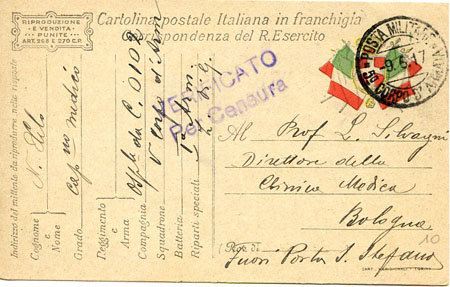 RIPRODUZIONE
E VENDITA
PUNITE
ART. 268 E 270 C.P.
Cartolina postale Italiana in franchigia
Corrispondenza del R. Esercito
POSTA MILITARE
9.6.17
5º CORPO D'ARMATA
VERIFICATO
Per Censura
Indirizzo del mittente da riprodurre nelle risposte
Cognome e Nome
Grado
Cap no medico
Reggimento e Arma
Compagnia
Squadrone
Batteria
Riparti speciali
0102
Vº Corpo d'Arm
Al Prof L. Silvagni
Direttore della
Clinica Medica
Bologna
Fuori Porta S. Stefano
10